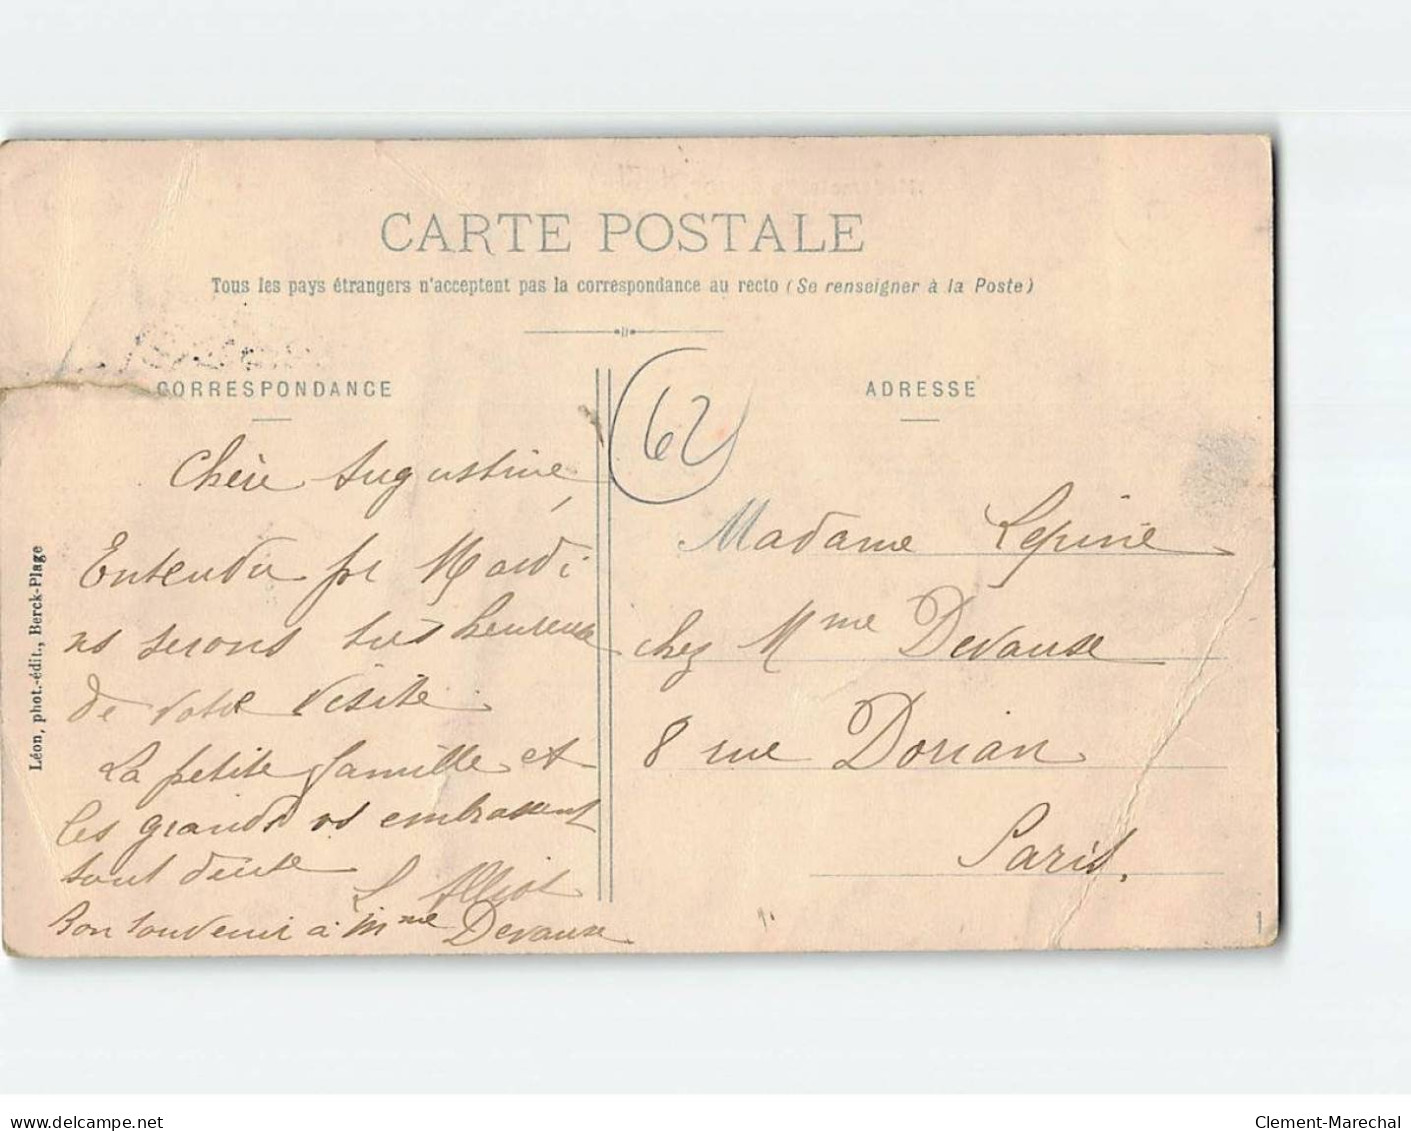 CARTE POSTALE
Tous les pays étrangers n'acceptent pas la correspondance au recto (Se renseigner à la Poste)
CORRESPONDANCE
Chère Augustine
Entendu pr Mardi
ns serons très heureux
de votre visite
La petite famille et
les grands vs embrassent
tout
L Alliot
Bon souvenir à Mme Devause
Léon, phot.-édit., Berck-Plage
62
ADRESSE
Madame Lepine
chez Mme Devause
8 rue Dorian
Paris.
www.delcampe.net
Clement-Marechal